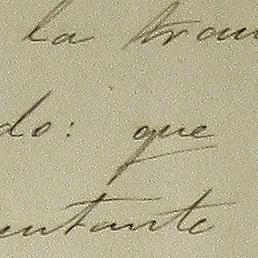 la tran
do: que
untante